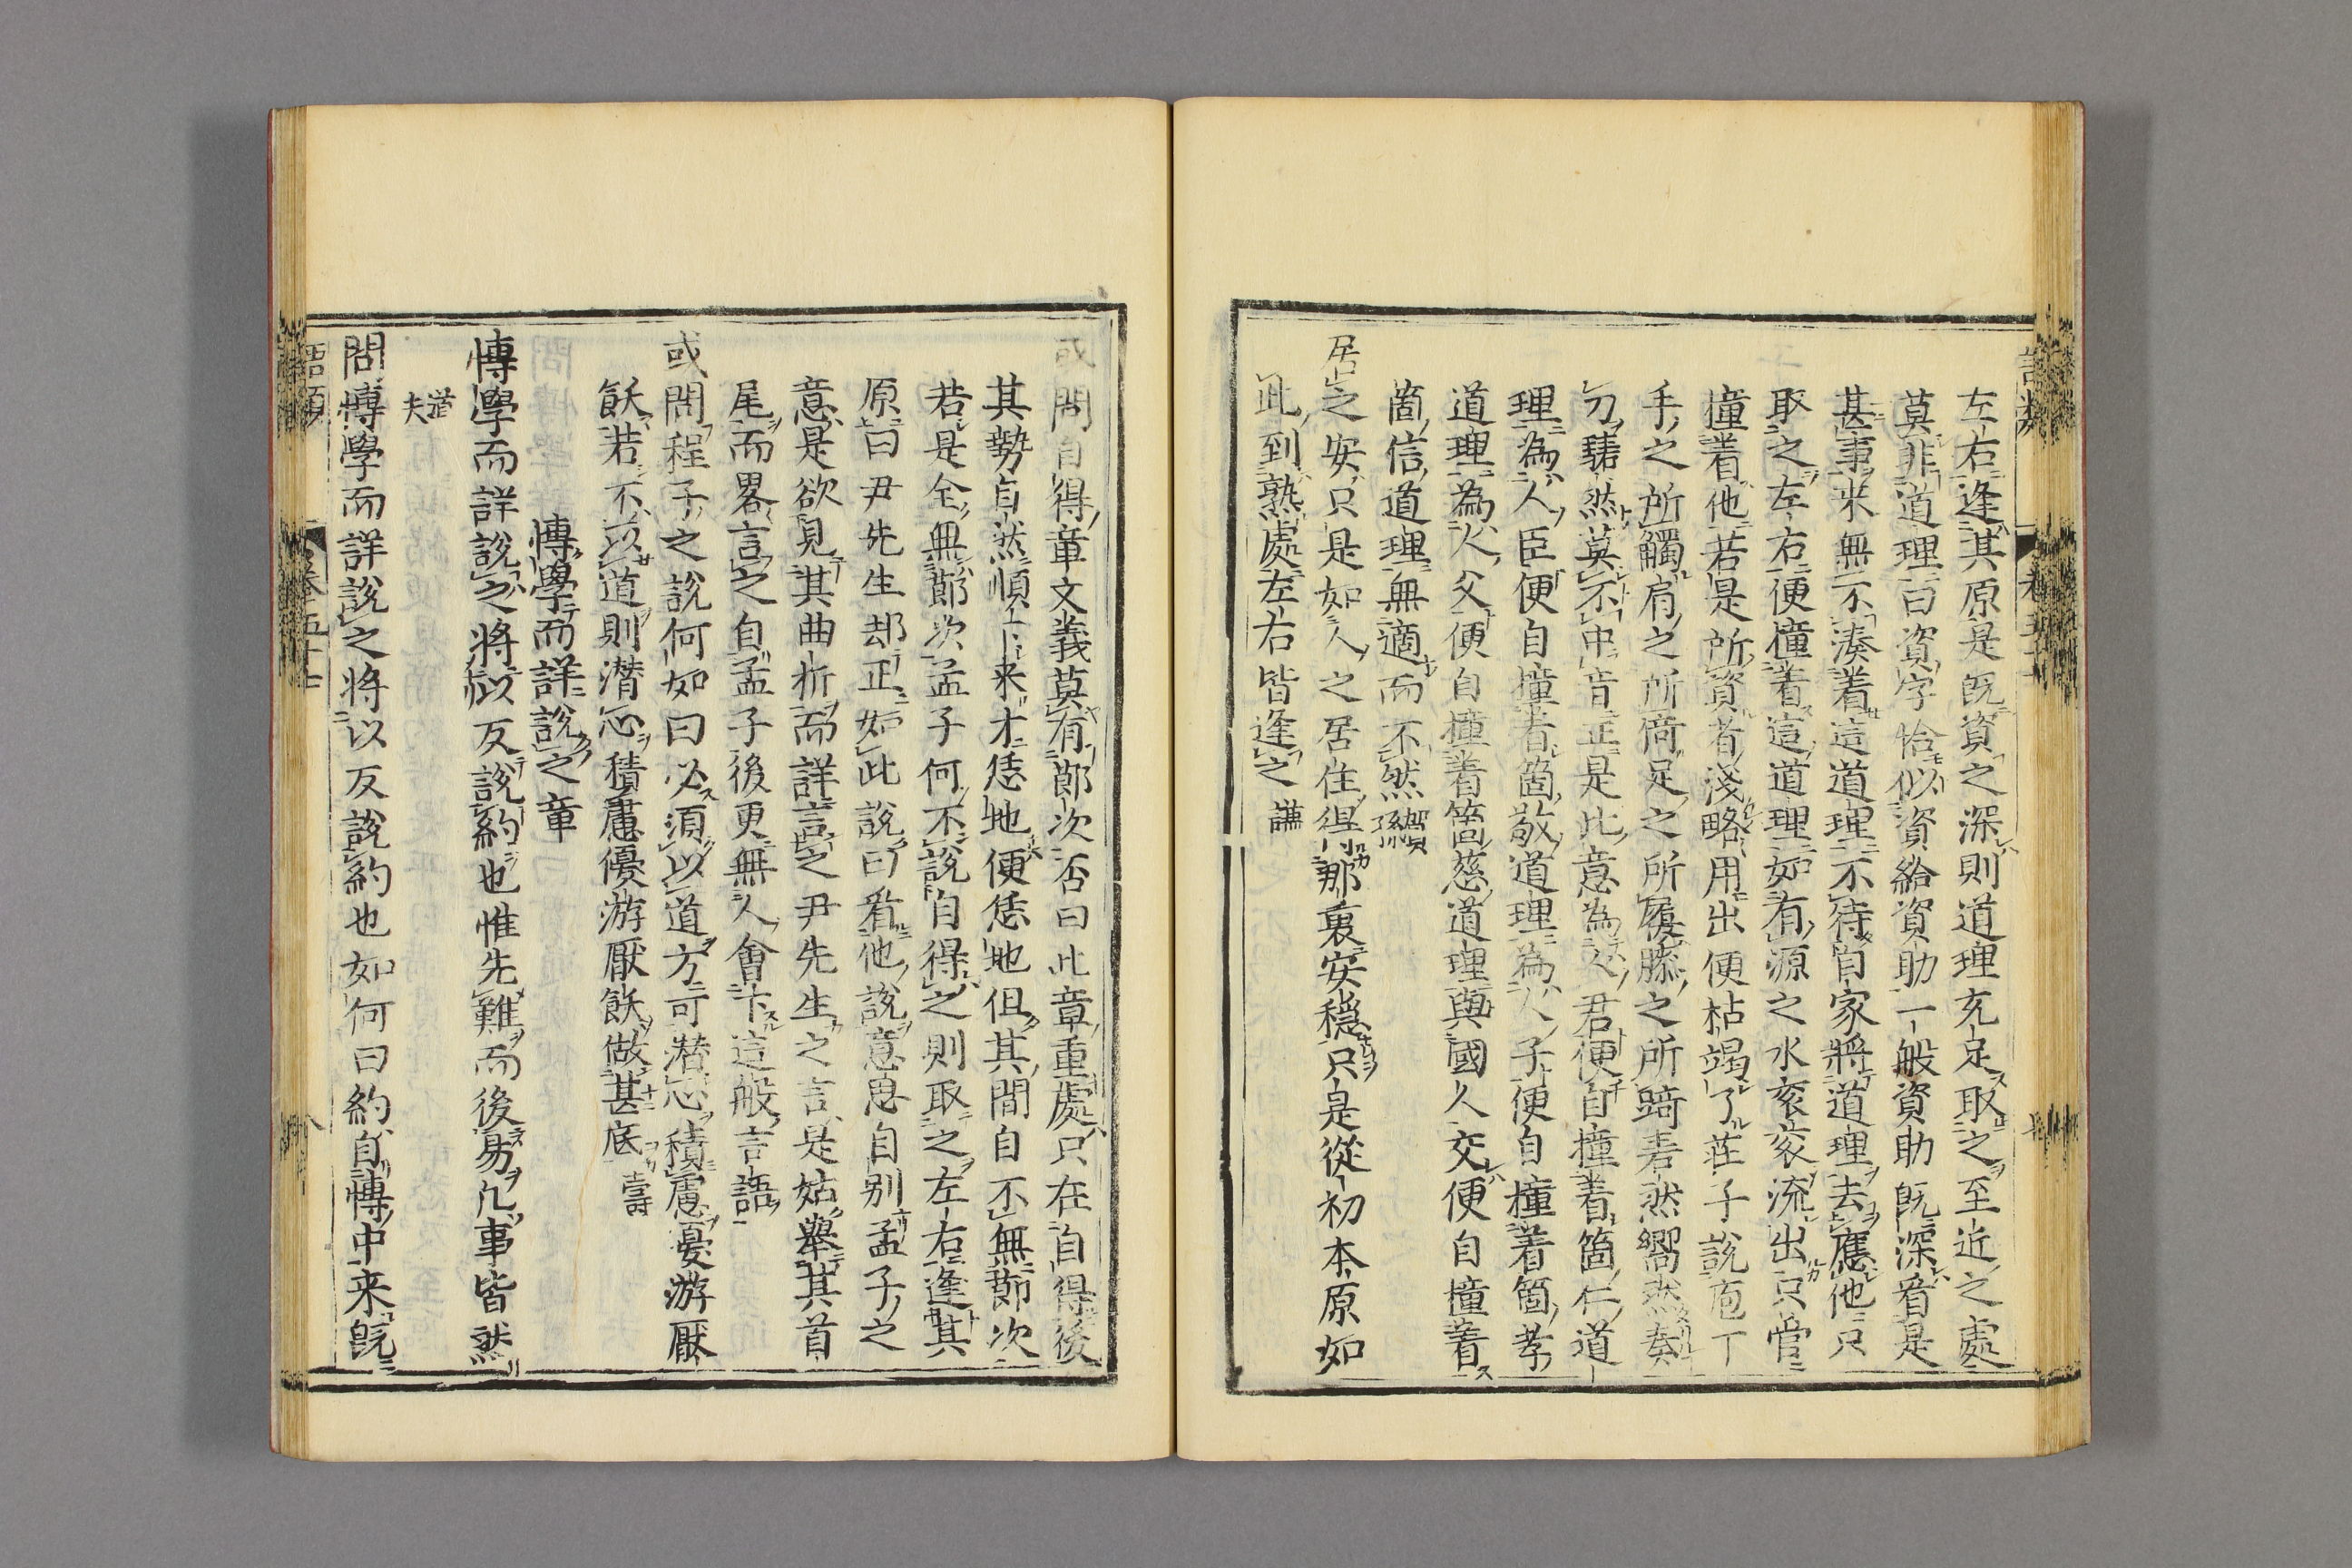 左右逢其原是既資之深則道理充足取之至近之處
莫非道理曰資字恰似資給資助一般資助既深看是
甚事来無不湊着這道理不待自家將道理去應他只
取之左右便撞着這道理如有源之水衮衮流出只管
撞着他若是所資者淺略用出便枯竭了莊子說庖丁
手之所觸肩之所倚足之所履膝之所踦砉然嚮然奏
刀騞然莫不中音正是此意為人君便自撞着箇仁道
理為人臣便自撞着箇敬道理為人子便自撞着箇孝
道理為人父便自撞着箇慈道理與國人交便自撞着
箇信道理無適而不然賀孫
居之安只是如人之居住得那裏安穩只是從初本原如
此到熟處左右皆逢之 謙
或問自得章文義莫有節次否曰此章重處只在自得後
其勢自然順下来才恁地便恁地但其間自不無節次
若是全無節次孟子何不說自得之則取之左右逢其
原曰尹先生却正如此說曰看他說意思自别孟子之
意是欲見其曲折而詳言之尹先生之言是姑舉其首
尾而畧言之自孟子後更無人會下這般言語
或問程子之說何如曰必須以道方可潜心積慮優游厭
飫若不以道則潜心積慮優游厭飫做甚底 壽
博學而詳說之章
博學而詳說之將以反說約也惟先難而後易凡事皆然
道夫
問博學而詳說之将以反說約也如何曰約自博中来既
語類 卷五十七 八